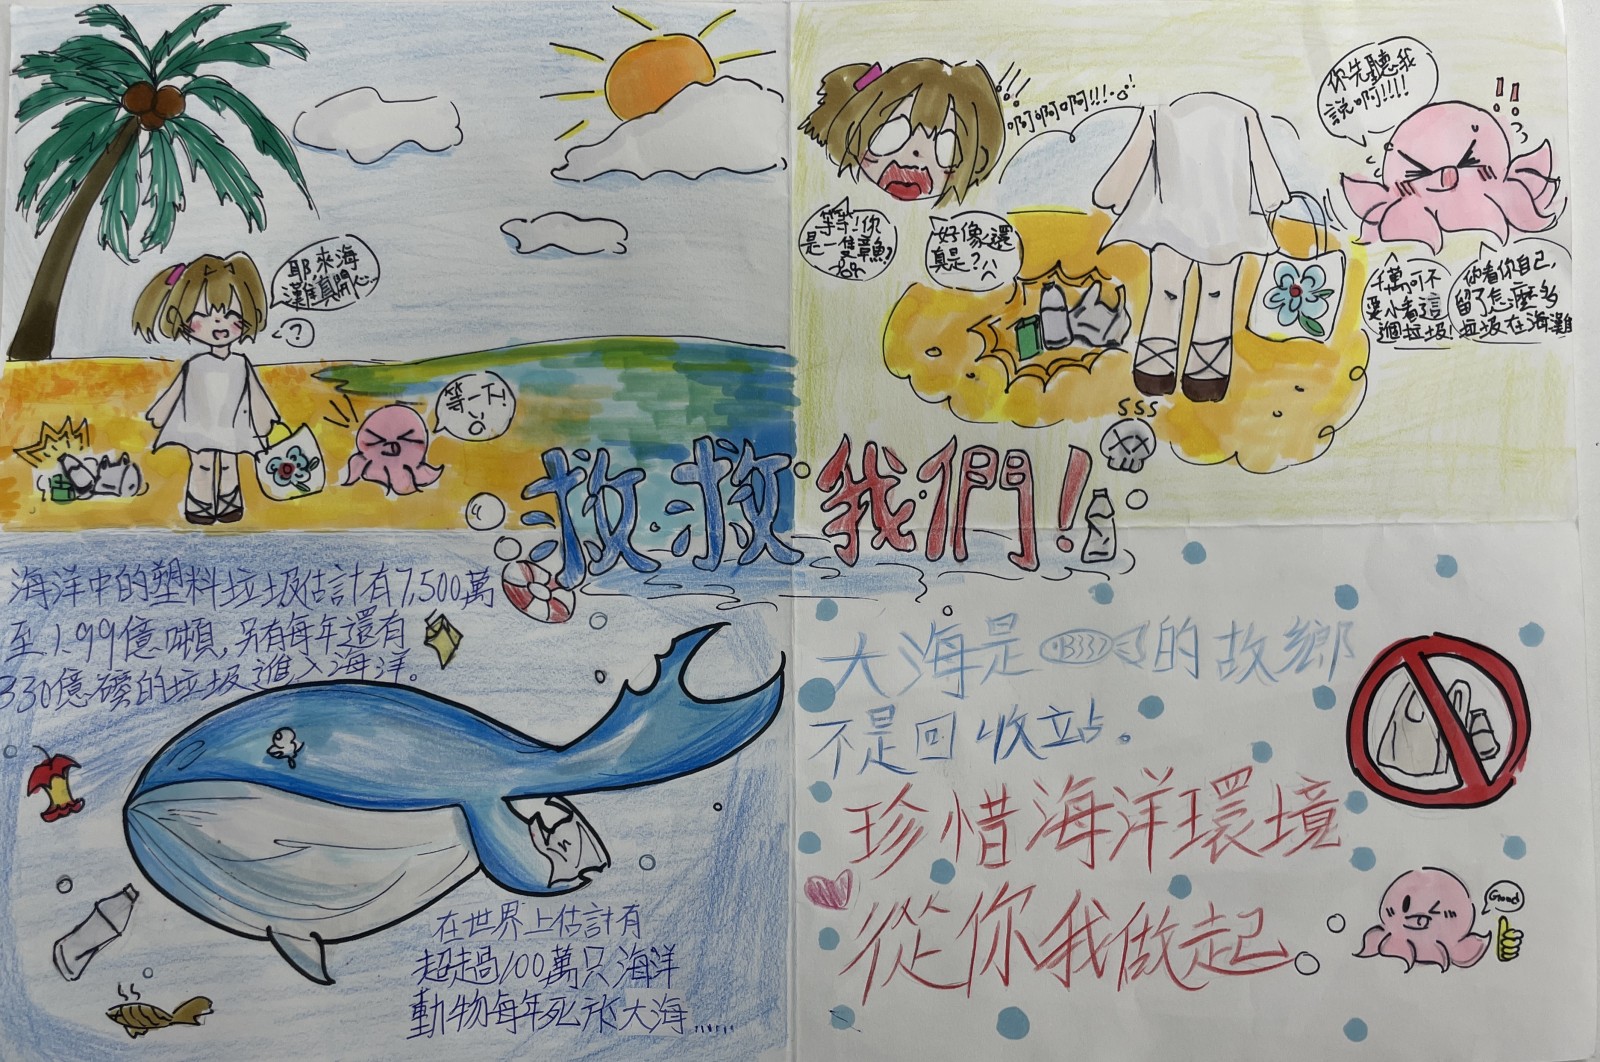 耶來海
灘真開心
?
等一下!
啊啊啊!!!
你先聽我
說啊!!!!
等等!你
是一隻章魚?
好像還
真是?
千萬可不
要小看這
個垃圾!
你看你自己,
留了怎麼多
垃圾在海灘
sss
救救我們!
海洋中的塑料垃圾估計有7,500萬
至1.99億噸,另有每年還有
330億磅的垃圾進入海洋。
在世界上估計有
超過100萬只海洋
動物每年死於大海......
大海是的故鄉
不是回收站。
珍惜海洋環境
從你我做起
Good